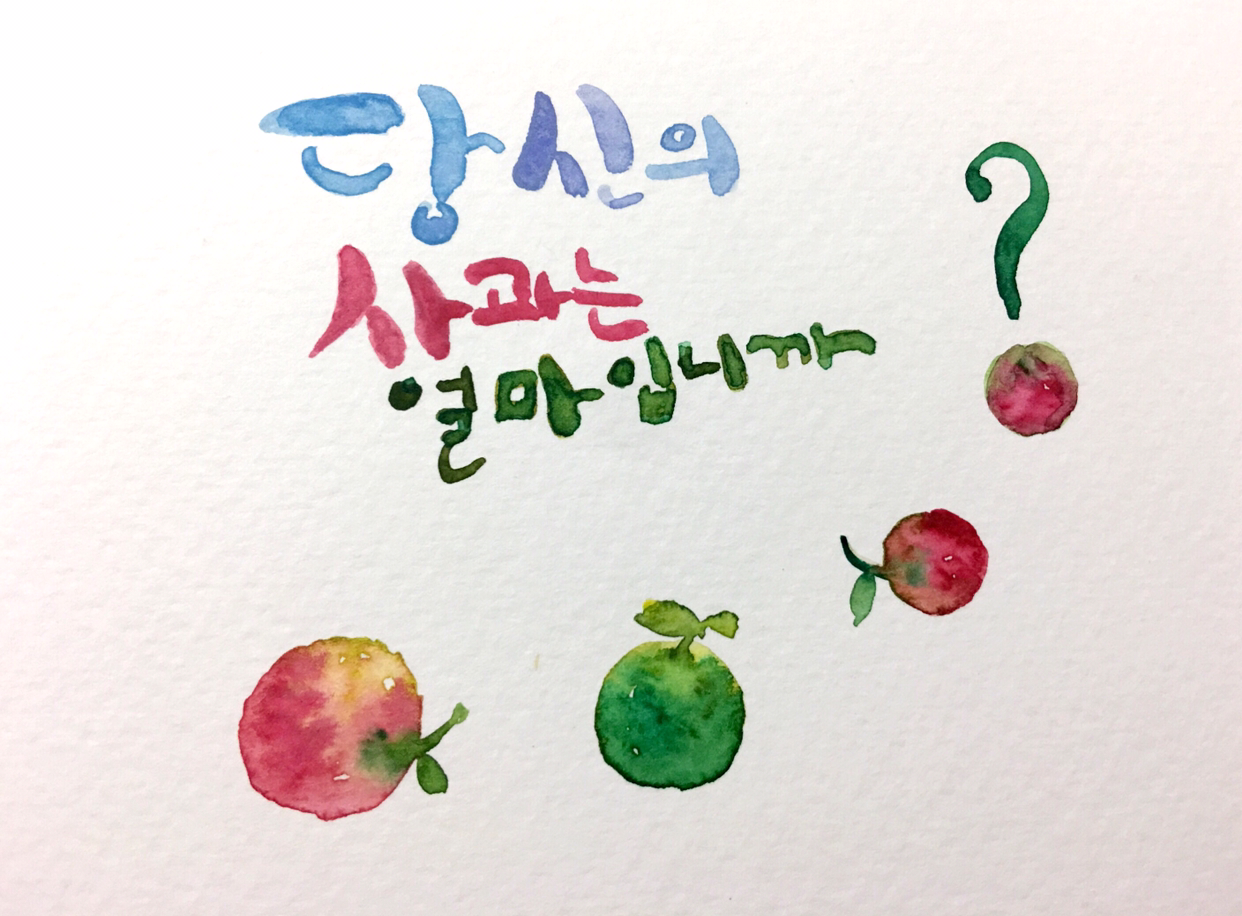 당신의
사과는
얼마입니까
?